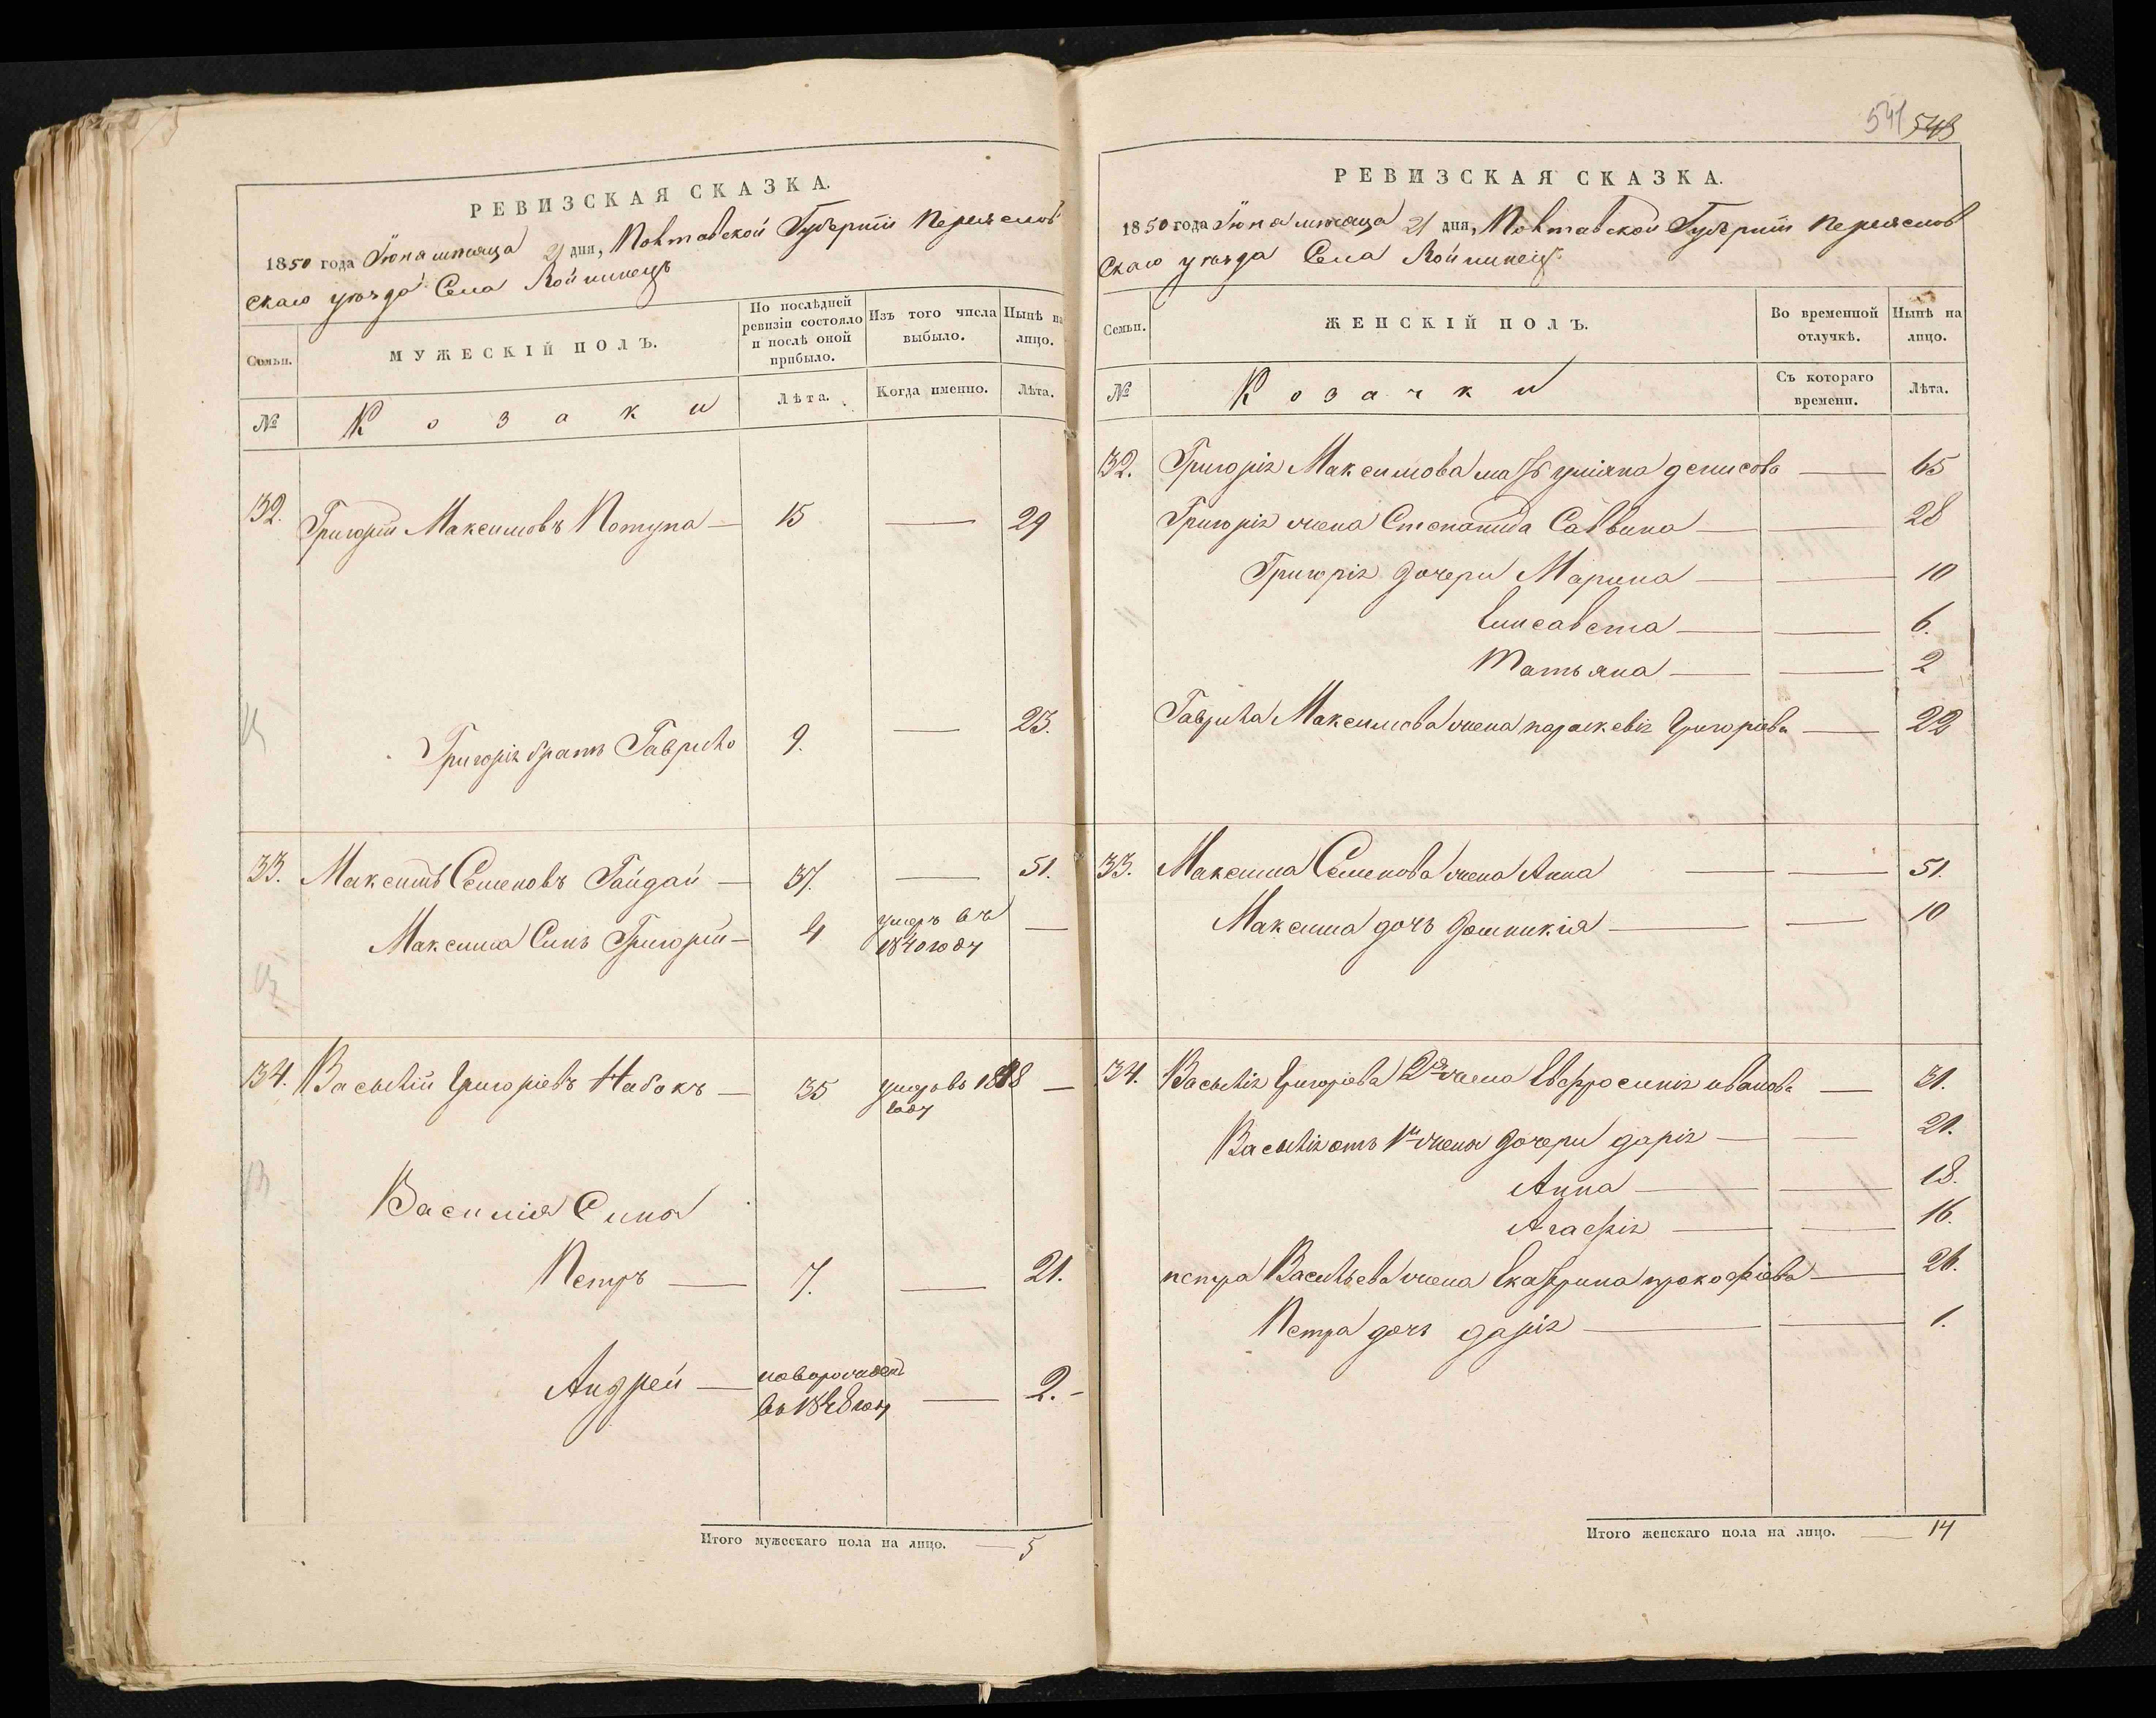 РЕВИЗСКАЯ СКАЗКА.
1850 года Іюня мѣсяца 21 дня, Полтавской Губерніи Переяслов
скаго уѣзда Села Войтинецъ
Семьи.
МУЖЕСКІЙ ПОЛЪ.
По послѣдней ревизіи состояло и послѣ оной прибыло.
Изъ того числа выбыло.
Нынѣ на лицо.
№
Козаки
Лѣта.
Когда именно.
Лѣта.
32. Григорій Максимовъ Потупа — 15 — 29
Григорія братъ Гаврило 9. — 23.
33. Максимъ Семеновъ Гайдай — 37. — 51.
Максима Синъ Григорій — 4 умеръ въ 1840 году —
34. Василій Григоріевъ Набокъ — 35 умеръ въ 18 8 году —
Василія Сина
Петръ — 7. — 21.
Андрей — новорожденъ въ 1848 году — 2. -
Итого мужескаго пола на лицо. — 5
541 543
РЕВИЗСКАЯ СКАЗКА.
1850 года Іюня мѣсяца 21 дня, Полтавской Губерніи Переяслов
скаго уѣзда Села Войтинецъ
Семьи.
ЖЕНСКІЙ ПОЛЪ.
Во временной отлучкѣ.
Нынѣ на лицо.
№
Козачки
Съ котораго времени.
Лѣта.
32. Григорія Максимова мать уліяна денисова — 65
Григорія жена Степанида Саввина — — 28
Григорія дочери Марина — — 10
Елисавета — — 6.
Татьяна — — 2
Гаврила Максимова жена параскевія Григорьева — 22
33. Максима Семенова жена Анна — — 51.
Максима дочъ Домникія — — 10
34. Василія Григоріева 2я жена Евфросинія иванова — 31.
Василія отъ 1й жены дочери дарія — — 21.
Анна — — 18.
Агафія — — 16.
петра Васильева жена Екатерина прокофіева — 26.
Петра дочъ дарія — — 1.
Итого женскаго пола на лицо. — 14